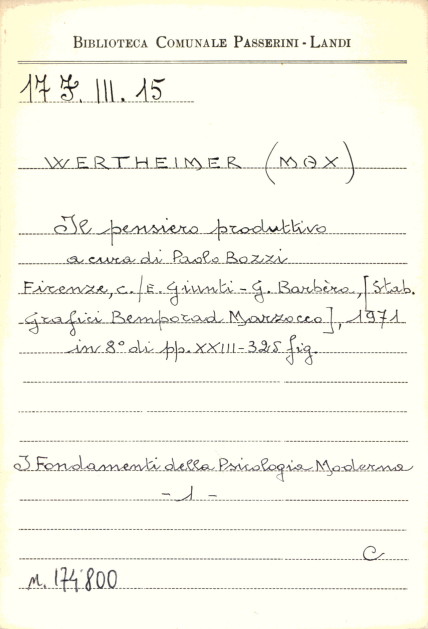 BIBLIOTECA COMUNALE PASSERINI - LANDI
17 F. III. 15
WERTHEIMER (MAX)
Il pensiero produttivo
a cura di Paolo Bozzi
Firenze, c./E. Giunti - G. Barbèra, [Stab.
Grafici Bemporad Marzocco], 1971
in 8° di pp. XXIII-325 fig.
I Fondamenti della Psicologia Moderna
- 1 -
C
n. 174'800